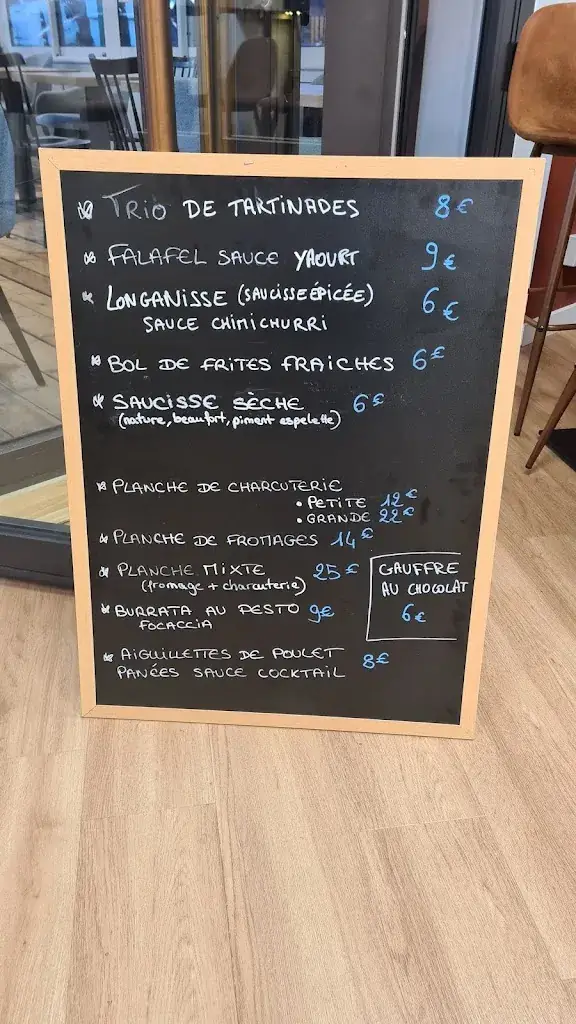 TRIO DE TARTINADES 8€
FALAFEL SAUCE YAOURT 9€
LONGANISSE (SAUCISSE ÉPICÉE) 6€
SAUCE CHIMICHURRI
BOL DE FRITES FRAICHES 6€
SAUCISSE SÈCHE 6€
(nature, beaufort, piment espelette)
PLANCHE DE CHARCUTERIE
• PETITE 12€
• GRANDE 22€
PLANCHE DE FROMAGES 14€
PLANCHE MIXTE 25€
(fromage + charcuterie)
BURRATA AU PESTO 9€
FOCACCIA
GAUFFRE
AU CHOCOLAT
6€
AIGUILLETTES DE POULET 8€
PANÉES SAUCE COCKTAIL